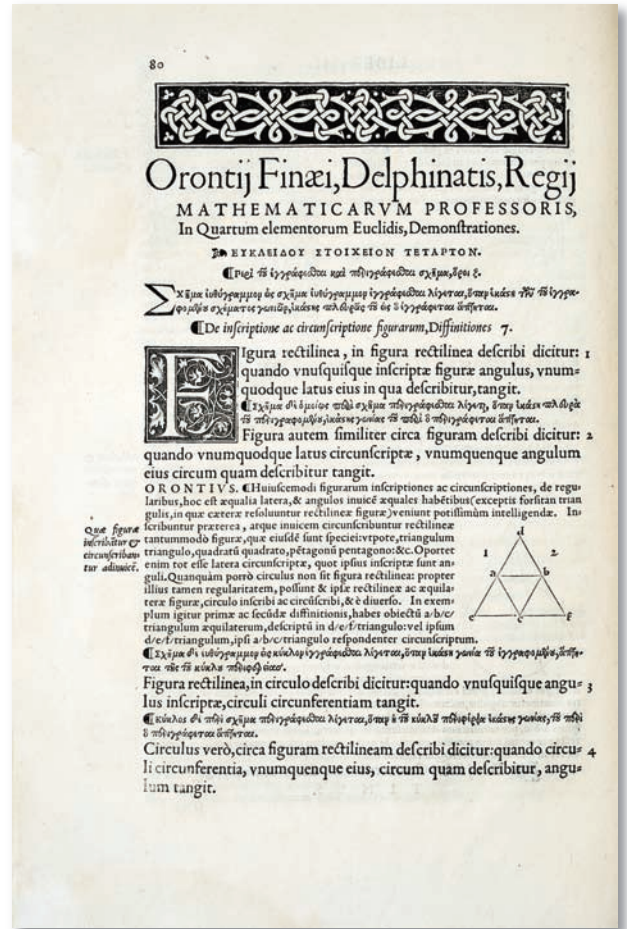 80
Orontij Finæi, Delphinatis, Regij
MATHEMATICARVM PROFESSORIS,
In Quartum elementorum Euclidis, Demonſtrationes.
ΕΥΚΛΕΙΔΟΥ ΣΤΟΙΧΕΙΟΝ ΤΕΤΑΡΤΟΝ.
¶De inſcriptione ac circunſcriptione figurarum, Diffinitiones 7.
FIgura rectilinea, in figura rectilinea deſcribi dicitur: 1
quando vnuſquiſque inſcriptæ figuræ angulus, vnum=
quodque latus eius in qua deſcribitur, tangit.
Figura autem ſimiliter circa figuram deſcribi dicitur: 2
quando vnumquodque latus circunſcriptæ, vnumquenque angulum
eius circum quam deſcribitur tangit.
ORONTIVS. ¶Huiuſcemodi figurarum inſcriptiones ac circunſcriptiones, de regu-
laribus, hoc eſt æqualia latera, & angulos inuicē æquales habētibus (exceptis forſitan trian
gulis, in quæ cæteræ reſoluuntur rectilineæ figuræ) veniunt potiſſimùm intelligendæ. In-
Quæ figuræ
inſcribātur &
circunſcriban=
tur adinuicē.
ſcribuntur præterea, atque inuicem circunſcribuntur rectilineæ
tantummodò figuræ, quæ eiuſdē ſunt ſpeciei: vtpote, triangulum
triangulo, quadratū quadrato, pētagonū pentagono: &c. Oportet
enim tot eſſe latera circunſcriptæ, quot ipſius inſcriptæ ſunt an-
guli. Quanquàm porrò circulus non ſit figura rectilinea: propter
illius tamen regularitatem, poſſunt & ipſæ rectilineæ ac æquila-
teræ figuræ, circulo inſcribi ac circūſcribi, & è diuerſo. In exem-
plum igitur primæ ac ſecūdæ diffinitionis, habes obiectū a/b/c/
triangulum æquilaterum, deſcriptū in d/e/f/triangulo: vel ipſum
d/e/f/triangulum, ipſi a/b/c/triangulo reſpondenter circunſcriptum.
d
1 2
a b
e c f
Figura rectilinea, in circulo deſcribi dicitur: quando vnuſquiſque angu= 3
lus inſcriptæ, circuli circunferentiam tangit.
Circulus verò, circa figuram rectilineam deſcribi dicitur: quando circu= 4
li circunferentia, vnumquenque eius, circum quam deſcribitur, angu=
lum tangit.